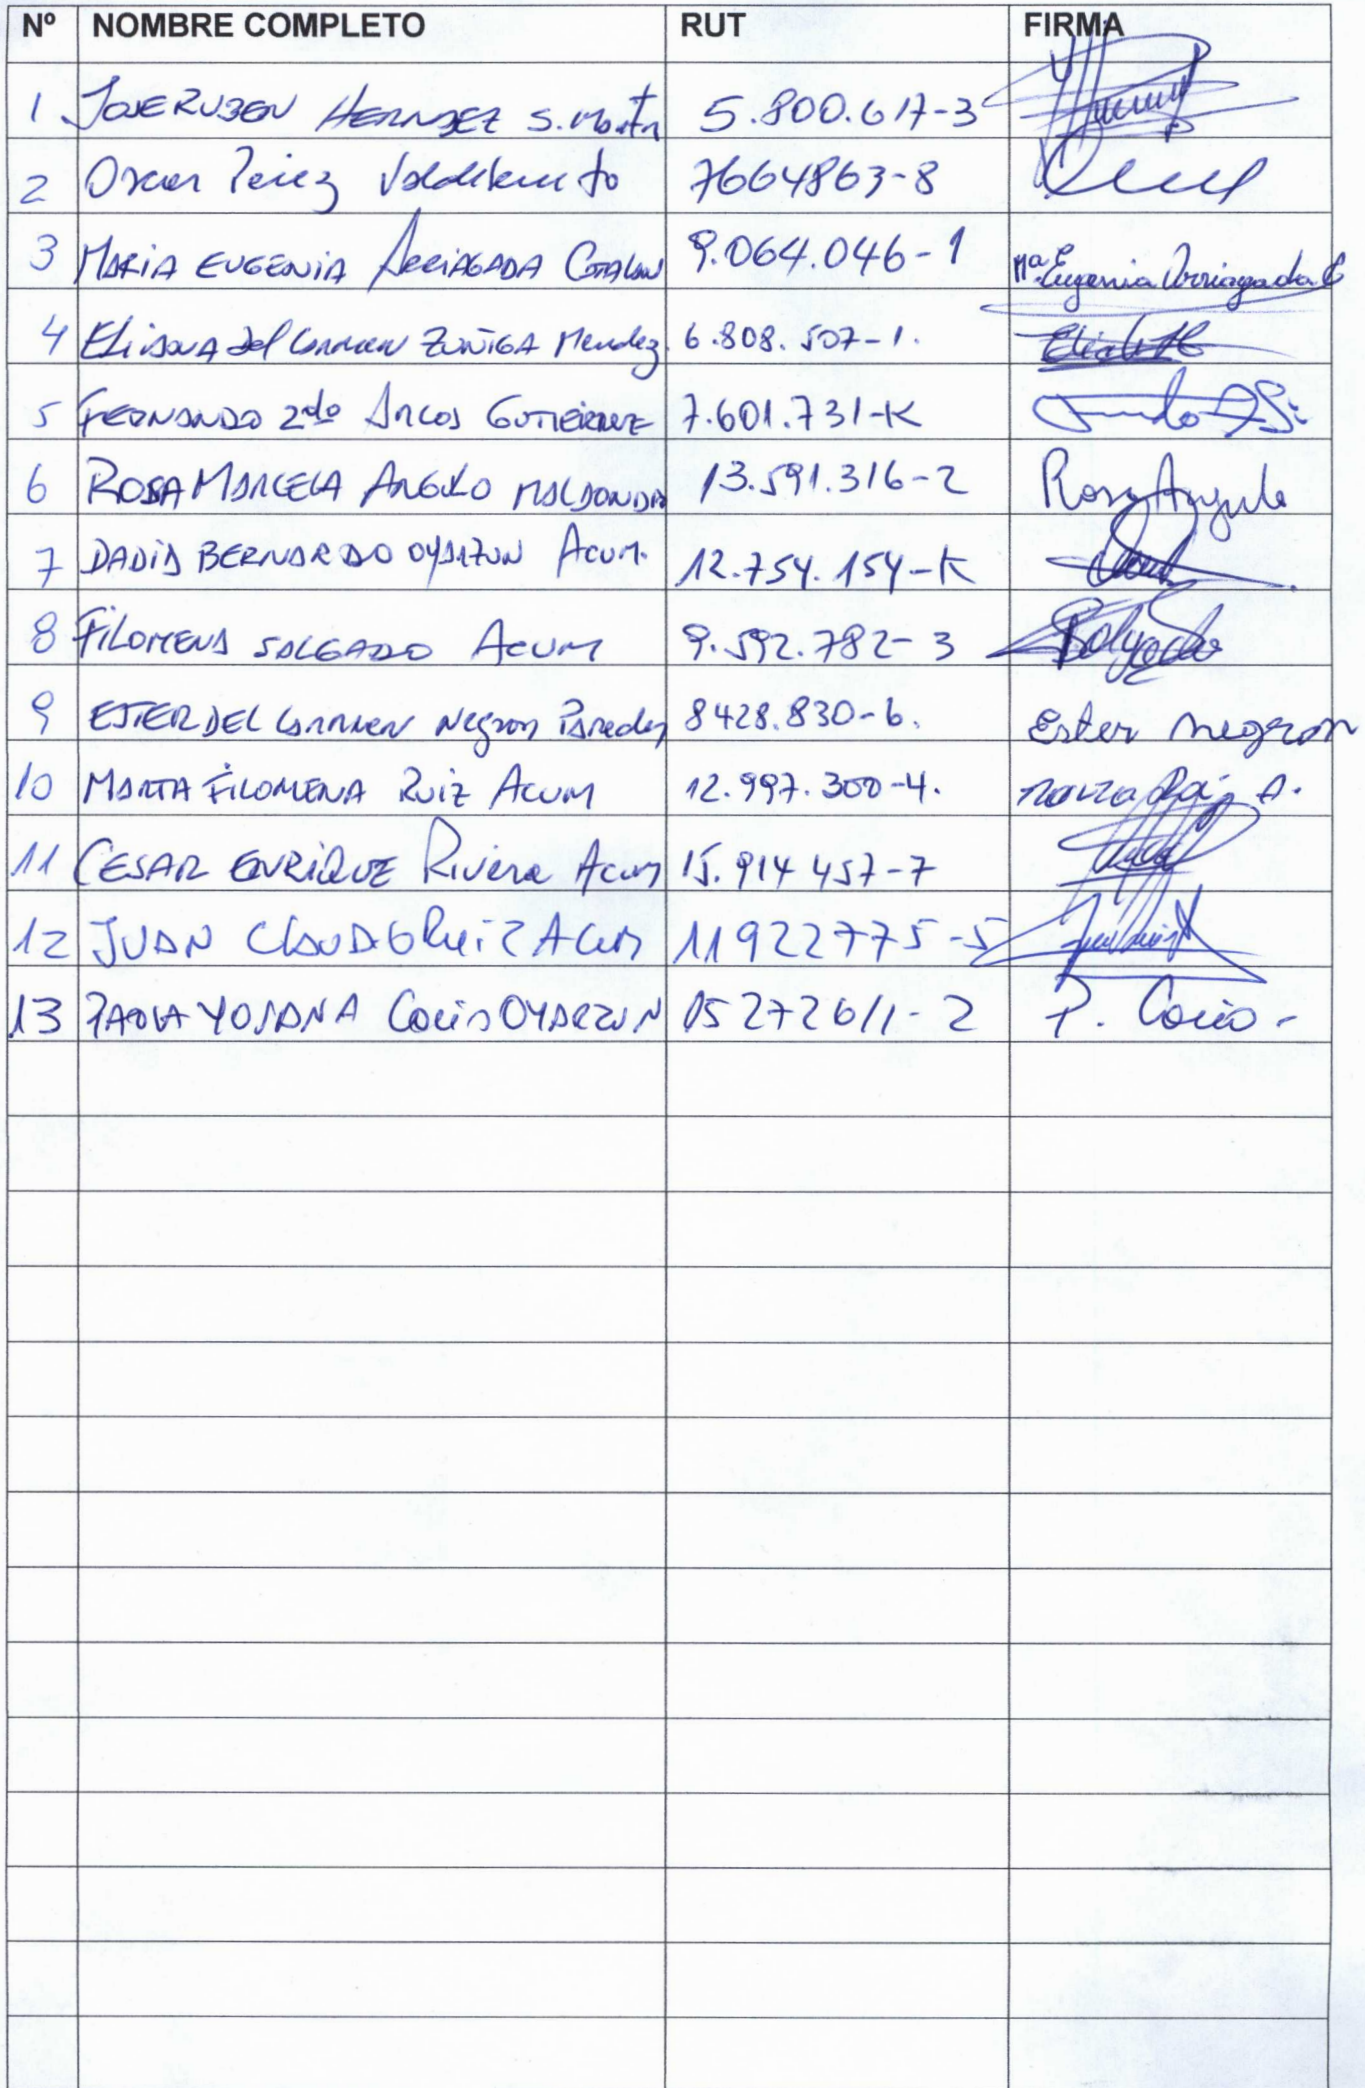 Nº NOMBRE COMPLETO RUT FIRMA
1 JOSE RUBEN HERNDEZ S. Martn 5.800.617-3
2 Oscar Perez Valdebenito 7664863-8
3 MARIA EUGENIA ARRIAGADA CATALAN 9.064.046-1 Mª Eugenia Arriagada C
4 ELIANA del CARMEN ZUÑIGA Mendez. 6.808.507-1.
5 FERNANDO 2do ARCOS GUTIERREZ 7.601.731-K
6 ROSA MARCELA ANGULO MALDONADO 13.591.316-2 Rosa Angulo
7 DADID BERNARDO OYARZUN ACUM. 12.754.154-K
8 FILOMENA SALGADO ACUM 9.592.782-3 Salgado
9 ESTER DEL CARMEN Negron Paredes 8428.830-6. Ester negron
10 MARTA FILOMENA RUIZ ACUM 12.997.300-4.
11 CESAR ENRIQUE Rivera Acum 15.914 457-7
12 JUAN CLAUDIO Ruiz ACUM 11922775-5
13 PAOLA YOSANA Cocio OYARZUN 15272611-2 P. Cocio-